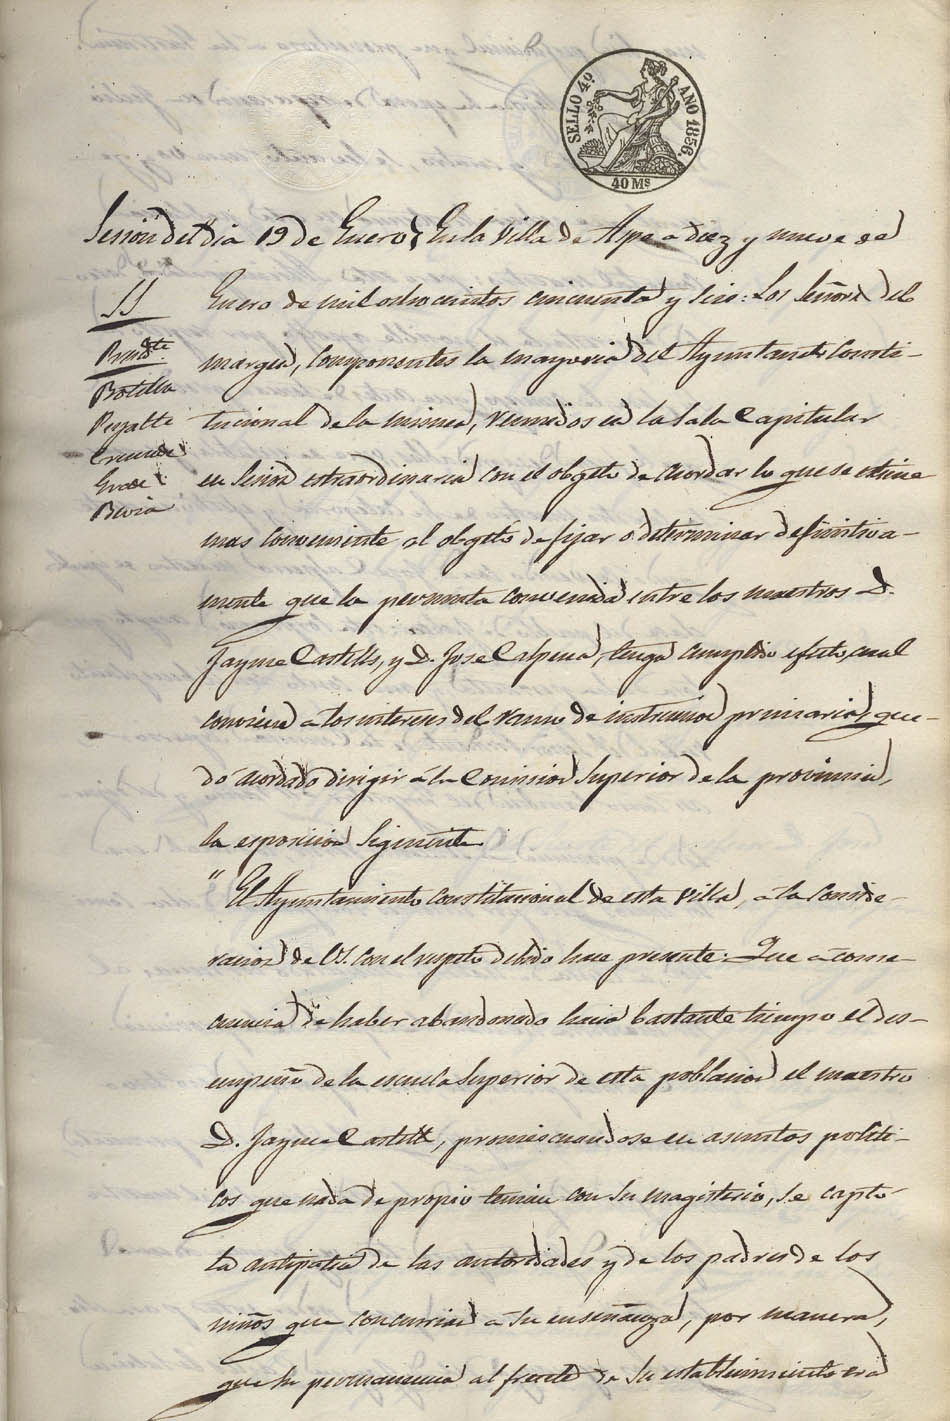 SELLO 4º
AÑO 1856.
40 Ms
Sesion del dia 19 de Enero } En la Villa de Aspe a diez y nueve de
SS
Enero de mil ochocientos cincuenta y seis: Los Señores del
Presidte
margen, componentes la mayoria del Ayuntamto Consti-
Botella
Pujalte
tucional de la misma, reunidos en la Sala Capitular
en Sesion estraordinaria con el obgeto de acordar lo que se estime
mas conveniente al obgeto de fijar o determinar definitiva-
mente que la permuta convenida entre los maestros D.
Jayme Castells, y D. Jose Calpena, tenga cumplido efecto, cual
conviene a los intereses del ramo de instruccion primaria, que-
dó acordado dirigir á la Comision Superior de la provincia,
la esposicion Siguiente.
" El Ayuntamiento constitucional de esta Villa, á la conside-
racion de V.S. con el respeto debido hace presente: Que á conse-
cuencia de haber abandonado hacia bastante tiempo el des-
empeño de la escuela Superior de esta poblacion el maestro
D. Jayme Castells, promiscuandose en asuntos politi-
cos que nada de propio tenian con su magisterio, se captó
la antipatia de las autoridades y de los padres de los
niños que concurrian á su enseñanza, por manera,
que su permanencia al frente de su establecimiento era